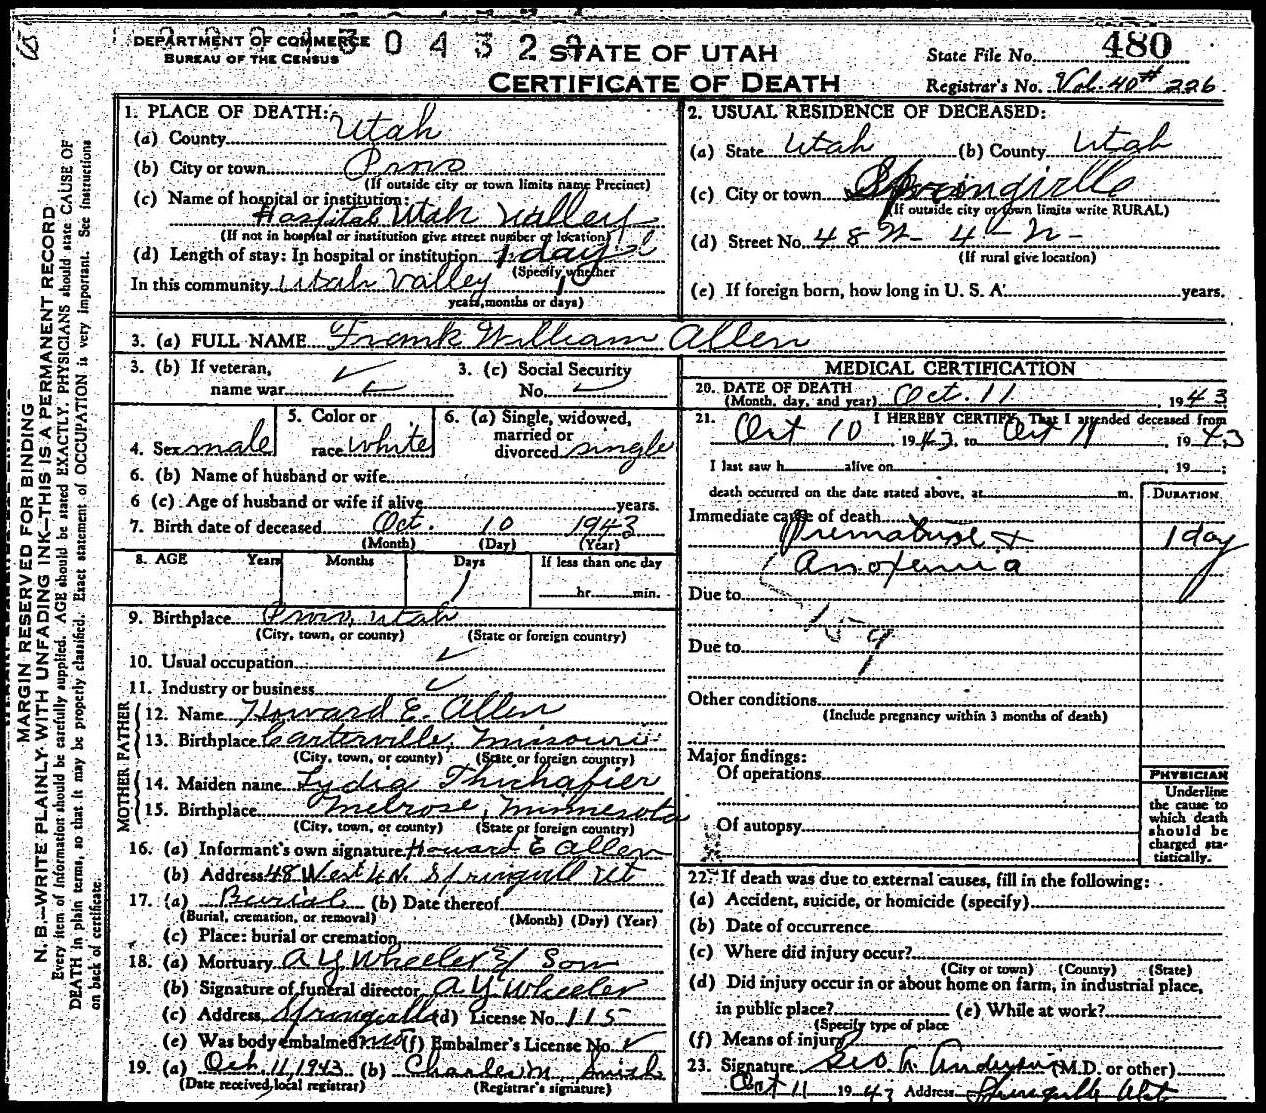 DEPARTMENT OF COMMERCE
BUREAU OF THE CENSUS
STATE OF UTAH
CERTIFICATE OF DEATH
State File No. 480
Registrar's No. Vol. 40 # 226
MARGIN RESERVED FOR BINDING
N. B.—WRITE PLAINLY WITH UNFADING INK—THIS IS A PERMANENT RECORD
Every item of information should be carefully supplied. AGE should be stated EXACTLY. PHYSICIANS should state CAUSE OF
DEATH in plain terms, so that it may be properly classified. Exact statement of OCCUPATION is very important. See instructions
on back of certificate.
1. PLACE OF DEATH:
(a) County Utah
(b) City or town Provo
(If outside city or town limits name Precinct)
(c) Name of hospital or institution:
Hospital Utah Valley
(If not in hospital or institution give street number or location)
(d) Length of stay: In hospital or institution 1 day
(Specify whether
In this community Utah Valley 1
years, months or days)
2. USUAL RESIDENCE OF DECEASED:
(a) State Utah (b) County Utah
(c) City or town Springville
(If outside city or town limits write RURAL)
(d) Street No. 48 W - 4 - N -
(If rural give location)
(e) If foreign born, how long in U. S. A. years.
3. (a) FULL NAME Frank William Allen
3. (b) If veteran,
name war
3. (c) Social Security
No.
4. Sex male
5. Color or
race white
6. (a) Single, widowed,
married or
divorced single
6. (b) Name of husband or wife
6 (c) Age of husband or wife if alive years.
7. Birth date of deceased Oct. 10 1943
(Month) (Day) (Year)
8. AGE Years Months Days If less than one day
1 hr. min.
9. Birthplace Provo, Utah
(City, town, or county) (State or foreign country)
10. Usual occupation
11. Industry or business
FATHER
12. Name Howard E. Allen
13. Birthplace Carterville, Missouri
(City, town, or county) (State or foreign country)
MOTHER
14. Maiden name Lydia
15. Birthplace Melrose, Minnesota
(City, town, or county) (State or foreign country)
16. (a) Informant's own signature Howard E Allen
(b) Address 48 West 4 N. Springvill Ut
17. (a) Burial (b) Date thereof
(Burial, cremation, or removal) (Month) (Day) (Year)
(c) Place: burial or cremation
18. (a) Mortuary A Y Wheeler & Son
(b) Signature of funeral director A Y Wheeler
(c) Address Springville (d) License No. 115
(e) Was body embalmed? no (f) Embalmer's License No.
19. (a) Oct. 11, 1943 (b) Charles M. Smith
(Date received local registrar) (Registrar's signature)
MEDICAL CERTIFICATION
20. DATE OF DEATH
(Month, day, and year) Oct. 11 1943
21. I HEREBY CERTIFY, That I attended deceased from
Oct 10, 1943, to Oct 11, 1943
I last saw h alive on , 19 ;
death occurred on the date stated above, at m.
DURATION
Immediate cause of death
Premature + 1 day
Anoxemia
Due to
159
Due to
Other conditions
(Include pregnancy within 3 months of death)
Major findings:
Of operations
Of autopsy
PHYSICIAN
Underline
the cause to
which death
should be
charged sta-
tistically.
22. If death was due to external causes, fill in the following:
(a) Accident, suicide, or homicide (specify)
(b) Date of occurrence
(c) Where did injury occur?
(City or town) (County) (State)
(d) Did injury occur in or about home on farm, in industrial place,
in public place? (e) While at work?
(Specify type of place
(f) Means of injury
23. Signature Geo. A. Anderson (M.D. or other)
Oct 11 1943 Address Springville Ut